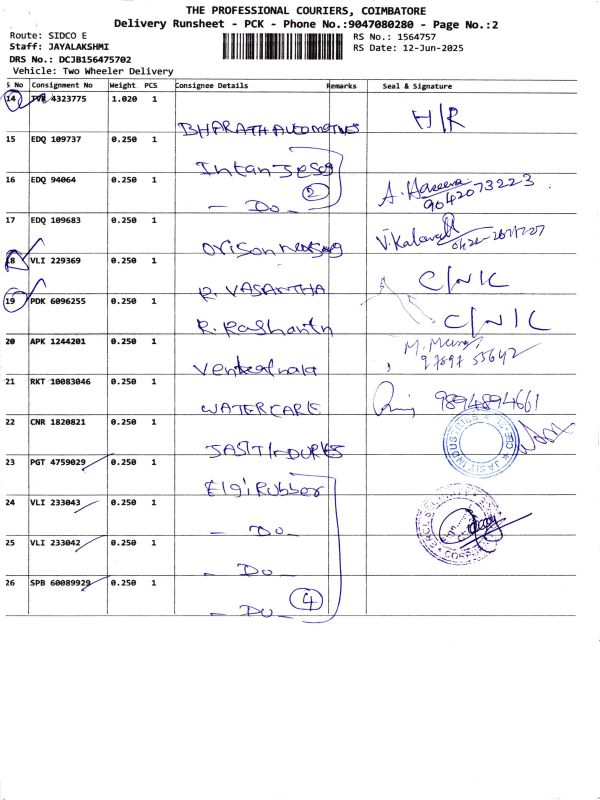 THE PROFESSIONAL COURIERS, COIMBATORE
Delivery Runsheet - PCK - Phone No.:9047080280 - Page No.:2
Route: SIDCO E
RS No.: 1564757
Staff: JAYALAKSHMI
RS Date: 12-Jun-2025
DRS No.: DCJB156475702
Vehicle: Two Wheeler Delivery
S No Consignment No Weight PCS Consignee Details Remarks Seal & Signature
14 4323775 1.020 1 H/R
BHARATH AUTOMOTIVES
15 EDQ 109737 0.250 1
16 EDQ 94064 0.250 1 2 A. Haseena
- Do - 9042073223
17 EDQ 109683 0.250 1
18 VLI 229369 0.250 1 C/NIC
R. VASANTHA
19 PDK 6096255 0.250 1 C/NIC
20 APK 1244201 0.250 1
21 RKT 10083046 0.250 1 9894894661
WATERCARE
22 CNR 1820821 0.250 1
23 PGT 4759029 0.250 1
Elgi Rubber
24 VLI 233043 0.250 1
- Do -
25 VLI 233042 0.250 1
- Do -
26 SPB 60089929 0.250 1 4
- Do -